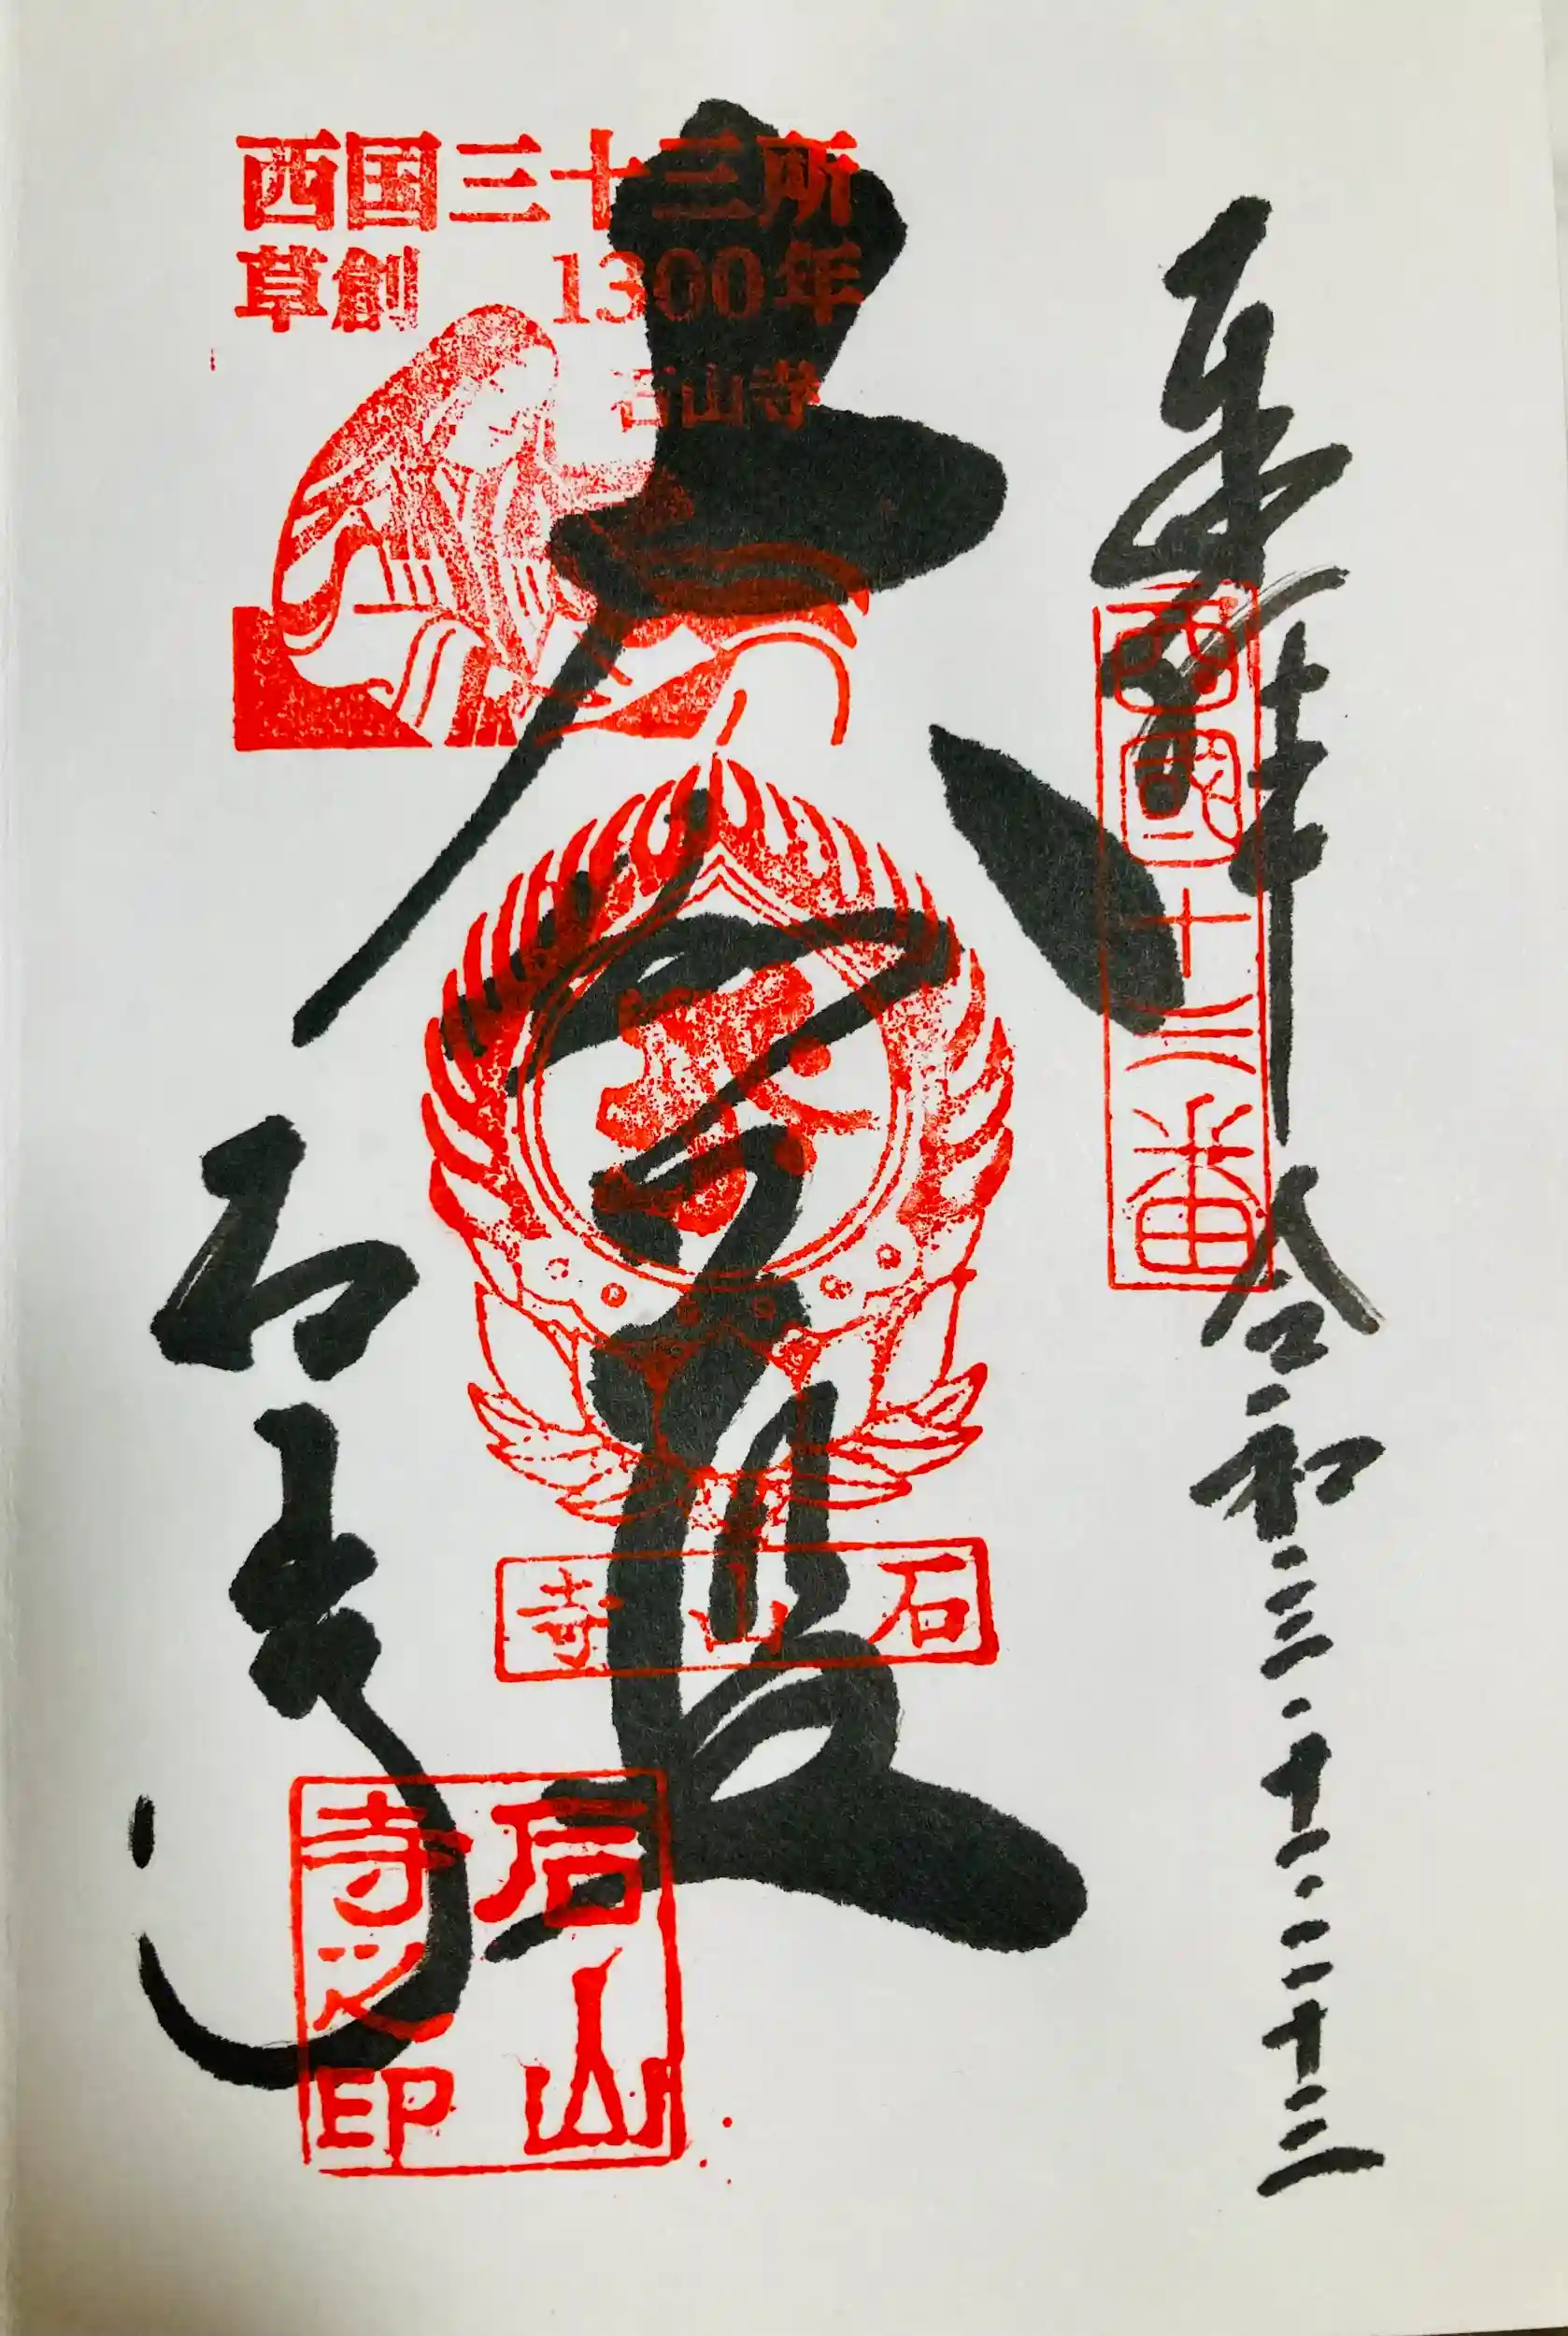 奉拝
西國十三番
令和三・十二・二十三
西国三十三所
草創 1300年
石山寺
大伽藍
石山寺
石山寺
石山
寺之印